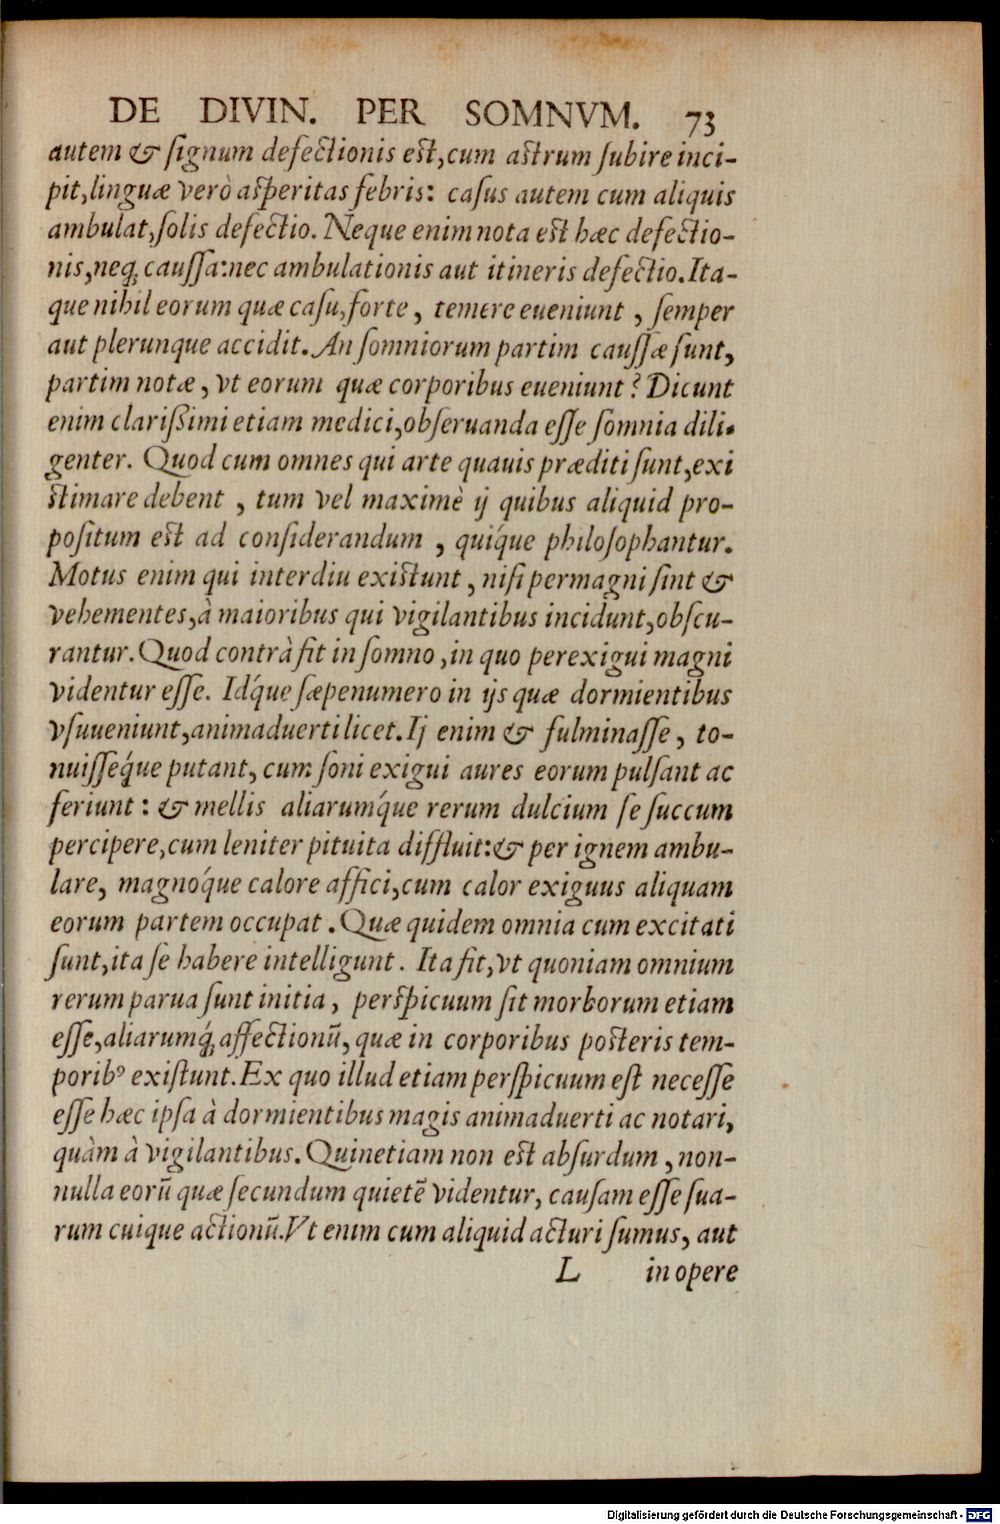 DE DIVIN. PER SOMNVM. 73
autem & ſignum defectionis est, cum astrum ſubire inci-
pit, linguæ verò asperitas febris: caſus autem cum aliquis
ambulat, ſolis defectio. Neque enim nota est hæc defectio-
nis, neq; cauſſa: nec ambulationis aut itineris defectio. Ita-
que nihil eorum quæ caſu, forte, temere eueniunt, ſemper
aut plerunque accidit. An ſomniorum partim cauſſæ ſunt,
partim notæ, vt eorum quæ corporibus eueniunt? Dicunt
enim clariſſimi etiam medici, obſeruanda eſſe ſomnia dili-
genter. Quod cum omnes qui arte quauis præditi ſunt, exi
stimare debent, tum vel maximè ij quibus aliquid pro-
poſitum est ad conſiderandum, quíque philoſophantur.
Motus enim qui interdiu existunt, niſi permagni ſint &
vehementes, à maioribus qui vigilantibus incidunt, obſcu-
rantur. Quod contrà fit in ſomno, in quo perexigui magni
videntur eſſe. Idque ſæpenumero in ijs quæ dormientibus
vſuueniunt, animaduerti licet. Ij enim & fulminaſſe, to-
nuiſſéque putant, cum ſoni exigui aures eorum pulſant ac
feriunt: & mellis aliarumque rerum dulcium ſe ſuccum
percipere, cum leniter pituita diffluit: & per ignem ambu-
lare, magnóque calore affici, cum calor exiguus aliquam
eorum partem occupat. Quæ quidem omnia cum excitati
ſunt, ita ſe habere intelligunt. Ita fit, vt quoniam omnium
rerum parua ſunt initia, perspicuum ſit morborum etiam
eſſe, aliarumq; affectionũ, quæ in corporibus posteris tem-
poribꝰ exiſtunt. Ex quo illud etiam perſpicuum eſt neceſſe
eſſe hæc ipſa à dormientibus magis animaduerti ac notari,
quàm à vigilantibus. Quinetiam non est abſurdum, non-
nulla eorũ quæ ſecundum quietẽ videntur, cauſam eſſe ſua-
rum cuique actionũ. Vt enim cum aliquid acturi ſumus, aut
L in opere
Digitalisierung gefördert durch die Deutsche Forschungsgemeinschaft - DFG